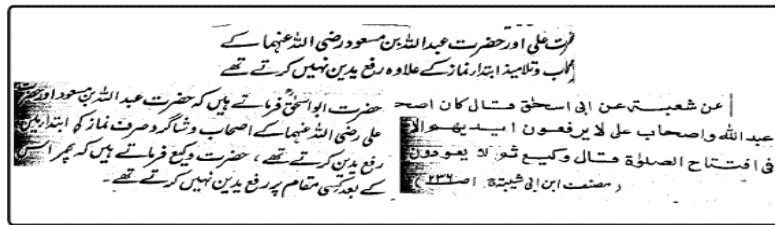 حضرت علی اور حضرت عبد اللہ بن مسعود رضی اللہ عنہما کے
اصحاب و تلامیذ ابتدار نماز کے علاوہ رفع یدین نہیں کرتے تھے
عن شعبة عن ابى اسحٰق قال كان اصحاب
عبد الله واصحاب على لا يرفعون ايديهم الا
فى افتتاح الصلوٰة قال وكيع ثم لا يعودون
(مصنف ابن ابی شیبة ج۱ ص ۲۳۶)
حضرت ابو اسحٰقؒ فرماتے ہیں کہ حضرت عبد اللہ بن مسعود اور حضرت
علی رضی اللہ عنہما کے اصحاب و شاگرد صرف نماز کی ابتدا میں
رفع یدین کرتے تھے، حضرت وکیع فرماتے ہیں کہ پھر اس
کے بعد کسی مقام پر رفع یدین نہیں کرتے تھے۔